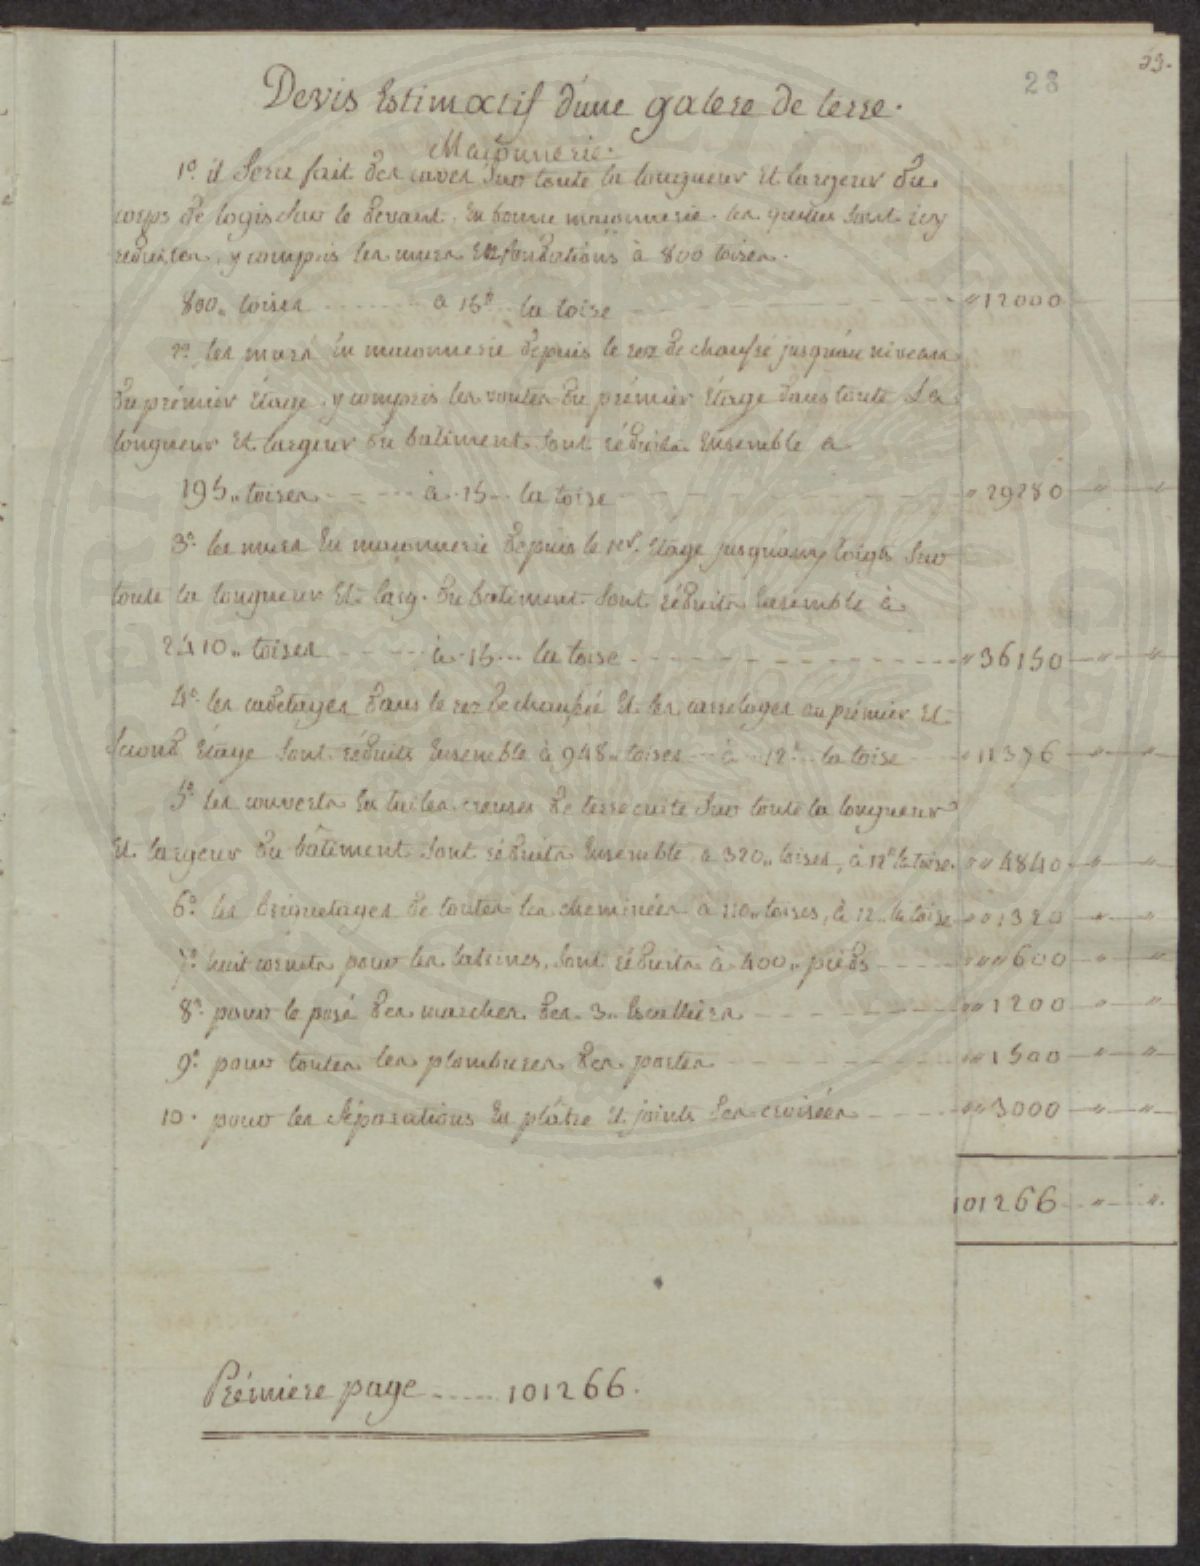 28
53.
Devis Estimatif d'une galere de terre.
Maçonnerie.
1º il Sera fait des caves Sur toute la longueur et largeur du
corps de logis Sur le devant, en bonne maçonnerie. les quelles sont icy
réduites, y compris les murs en fondations à 800 toises.
800,, toises - - - - à 15# la toise - - - - " 12000
2º les murs en maconnerie depuis le rez de chaussé jusqu'au niveau
du prémier étage, y compris les voutes du prémier étage dans toute Sa
longueur et largeur du batiment. sont réduits Ensemble a
195,, toises - - - - à 15 - - la toise - - - - " 29280 - " - "
3º les murs en maconnerie depuis le 1er. étage jusqu'aux toigts Sur
toute la longueur et larg. du batiment. sont réduits Ensemble à
2410,, toises - - - - à 15 - - la toise - - - - " 36150 - " - "
4º les cadetages dans le rez de chaussée et les carrelages au prémier et
Second étage sont réduits Ensemble à 948,, toises - - à - 12# - la toise - - " 11376 - " - "
5º les couverts en tuiles creuses de terre cuite Sur toute la longueur
et largeur du bâtiment sont réduits Ensemble a 320,, toises, à 12# la toise. " " 4840 - " - "
6º les briquetages de toutes les cheminées a 110,, toises, à 12,, la toise " " 1320 - " - "
7º huit cornets pour les latrines, sont réduits à 400,, pieds - - - - " " " 600 - " - "
8º pour le posé des marches des 3,, Escalliers - - - - " " 1200 - " - "
9º pour toutes les plombures des portes - - - - " " 1500 - " - "
10. pour les Séparations en plâtre et joints des croisées - - - - " " 3000 - " - "
101266 - " - ".
Prémiere page - - - - 101266.